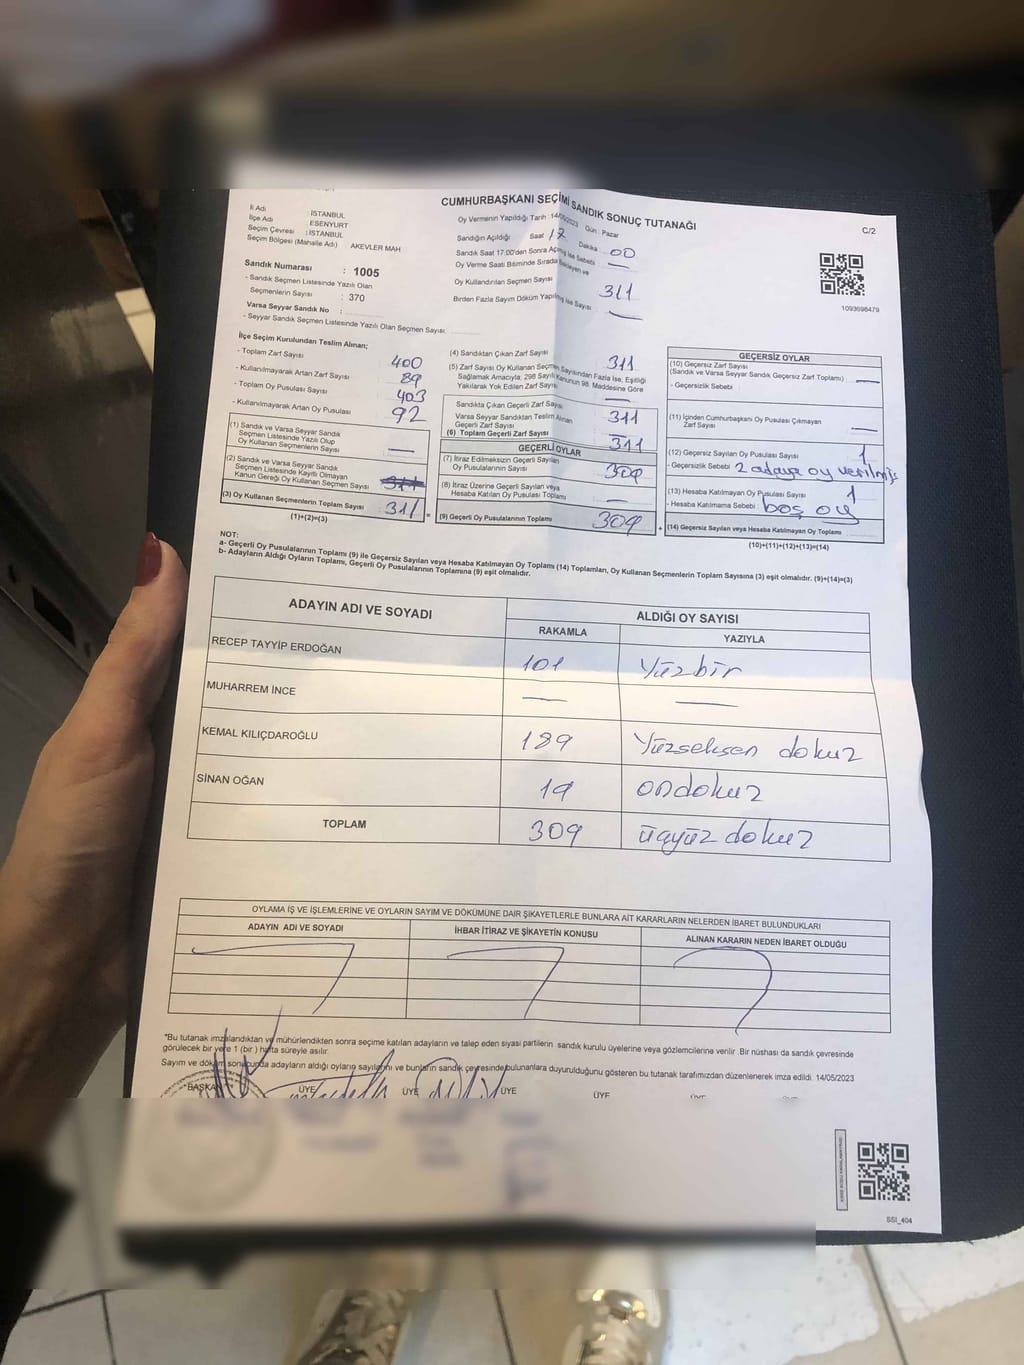 CUMHURBAŞKANI SEÇİMİ SANDIK SONUÇ TUTANAĞI
C/2
İl Adı : İSTANBUL
İlçe Adı : ESENYURT
Seçim Çevresi : İSTANBUL
Seçim Bölgesi (Mahalle Adı) : AKEVLER MAH
Sandık Numarası : 1005
- Sandık Seçmen Listesinde Yazılı Olan
Seçmenlerin Sayısı : 370
Varsa Seyyar Sandık No :
- Seyyar Sandık Seçmen Listesinde Yazılı Olan Seçmen Sayısı:
Oy Vermenin Yapıldığı Tarih : 14/05/2023 Gün : Pazar
Sandığın Açıldığı Saat 17 Dakika 00
Sandık Saat 17:00'den Sonra Açılmış İse Sebebi : —
Oy Verme Saati Bitiminde Sırada Bekleyen ve
Oy Kullandırılan Seçmen Sayısı : 311
Birden Fazla Sayım Döküm Yapılmış İse Sayısı : —
1093698479
İlçe Seçim Kurulundan Teslim Alınan;
- Toplam Zarf Sayısı : 400
- Kullanılmayarak Artan Zarf Sayısı : 89
- Toplam Oy Pusulası Sayısı : 403
- Kullanılmayarak Artan Oy Pusulası : 92
(1) Sandık ve Varsa Seyyar Sandık
Seçmen Listesinde Yazılı Olup
Oy Kullanan Seçmenlerin Sayısı : —
(2) Sandık ve Varsa Seyyar Sandık
Seçmen Listesinde Kayıtlı Olmayan
Kanun Gereği Oy Kullanan Seçmen Sayısı : 311
(3) Oy Kullanan Seçmenlerin Toplam Sayısı : 311 =
(1)+(2)=(3)
(4) Sandıktan Çıkan Zarf Sayısı : 311
(5) Zarf Sayısı Oy Kullanan Seçmen Sayısından Fazla İse, Eşitliği
Sağlamak Amacıyla; 298 Sayılı Kanunun 98. Maddesine Göre
Yakılarak Yok Edilen Zarf Sayısı : —
Sandıkta Çıkan Geçerli Zarf Sayısı : 311
Varsa Seyyar Sandıktan Teslim Alınan
Geçerli Zarf Sayısı
(6) Toplam Geçerli Zarf Sayısı : 311
GEÇERLİ OYLAR
(7) İtiraz Edilmeksizin Geçerli Sayılan
Oy Pusulalarının Sayısı : 309
(8) İtiraz Üzerine Geçerli Sayılan veya
Hesaba Katılan Oy Pusulası Toplamı : —
(9) Geçerli Oy Pusulalarının Toplamı : 309 +
GEÇERSİZ OYLAR
(10) Geçersiz Zarf Sayısı
(Sandık ve Varsa Seyyar Sandık Geçersiz Zarf Toplamı) : —
- Geçersizlik Sebebi :
(11) İçinden Cumhurbaşkanı Oy Pusulası Çıkmayan
Zarf Sayısı : —
(12) Geçersiz Sayılan Oy Pusulası Sayısı : 1
- Geçersizlik Sebebi : 2 adaya oy verilmiş
(13) Hesaba Katılmayan Oy Pusulası Sayısı : 1
- Hesaba Katılmama Sebebi : boş oy
(14) Geçersiz Sayılan veya Hesaba Katılmayan Oy Toplamı
(10)+(11)+(12)+(13)=(14)
NOT:
a- Geçerli Oy Pusulalarının Toplamı (9) ile Geçersiz Sayılan veya Hesaba Katılmayan Oy Toplamı (14) Toplamları, Oy Kullanan Seçmenlerin Toplam Sayısına (3) eşit olmalıdır. (9)+(14)=(3)
b- Adayların Aldığı Oyların Toplamı, Geçerli Oy Pusulalarının Toplamına (9) eşit olmalıdır.
ADAYIN ADI VE SOYADI ALDIĞI OY SAYISI
RAKAMLA YAZIYLA
RECEP TAYYİP ERDOĞAN 101 Yüzbir
MUHARREM İNCE — —
KEMAL KILIÇDAROĞLU 189 Yüzseksen dokuz
SİNAN OĞAN 19 ondokuz
TOPLAM 309 üçyüz dokuz
OYLAMA İŞ VE İŞLEMLERİNE VE OYLARIN SAYIM VE DÖKÜMÜNE DAİR ŞİKAYETLERLE BUNLARA AİT KARARLARIN NELERDEN İBARET BULUNDUKLARI
ADAYIN ADI VE SOYADI İHBAR İTİRAZ VE ŞİKAYETİN KONUSU ALINAN KARARIN NEDEN İBARET OLDUĞU
*Bu tutanak imzalandıktan ve mühürlendikten sonra seçime katılan adayların ve talep eden siyasi partilerin sandık kurulu üyelerine veya gözlemcilerine verilir .Bir nüshası da sandık çevresinde
görülecek bir yere 1 (bir ) hafta süreyle asılır.
Sayım ve döküm sonucunda adayların aldığı oyların sayılarını ve bunların sandık çevresinde bulunanlara duyurulduğunu gösteren bu tutanak tarafımızdan düzenlenerek imza edildi. 14/05/2023
*BAŞKAN* ÜYE ÜYE ÜYE ÜYE
SSI_404